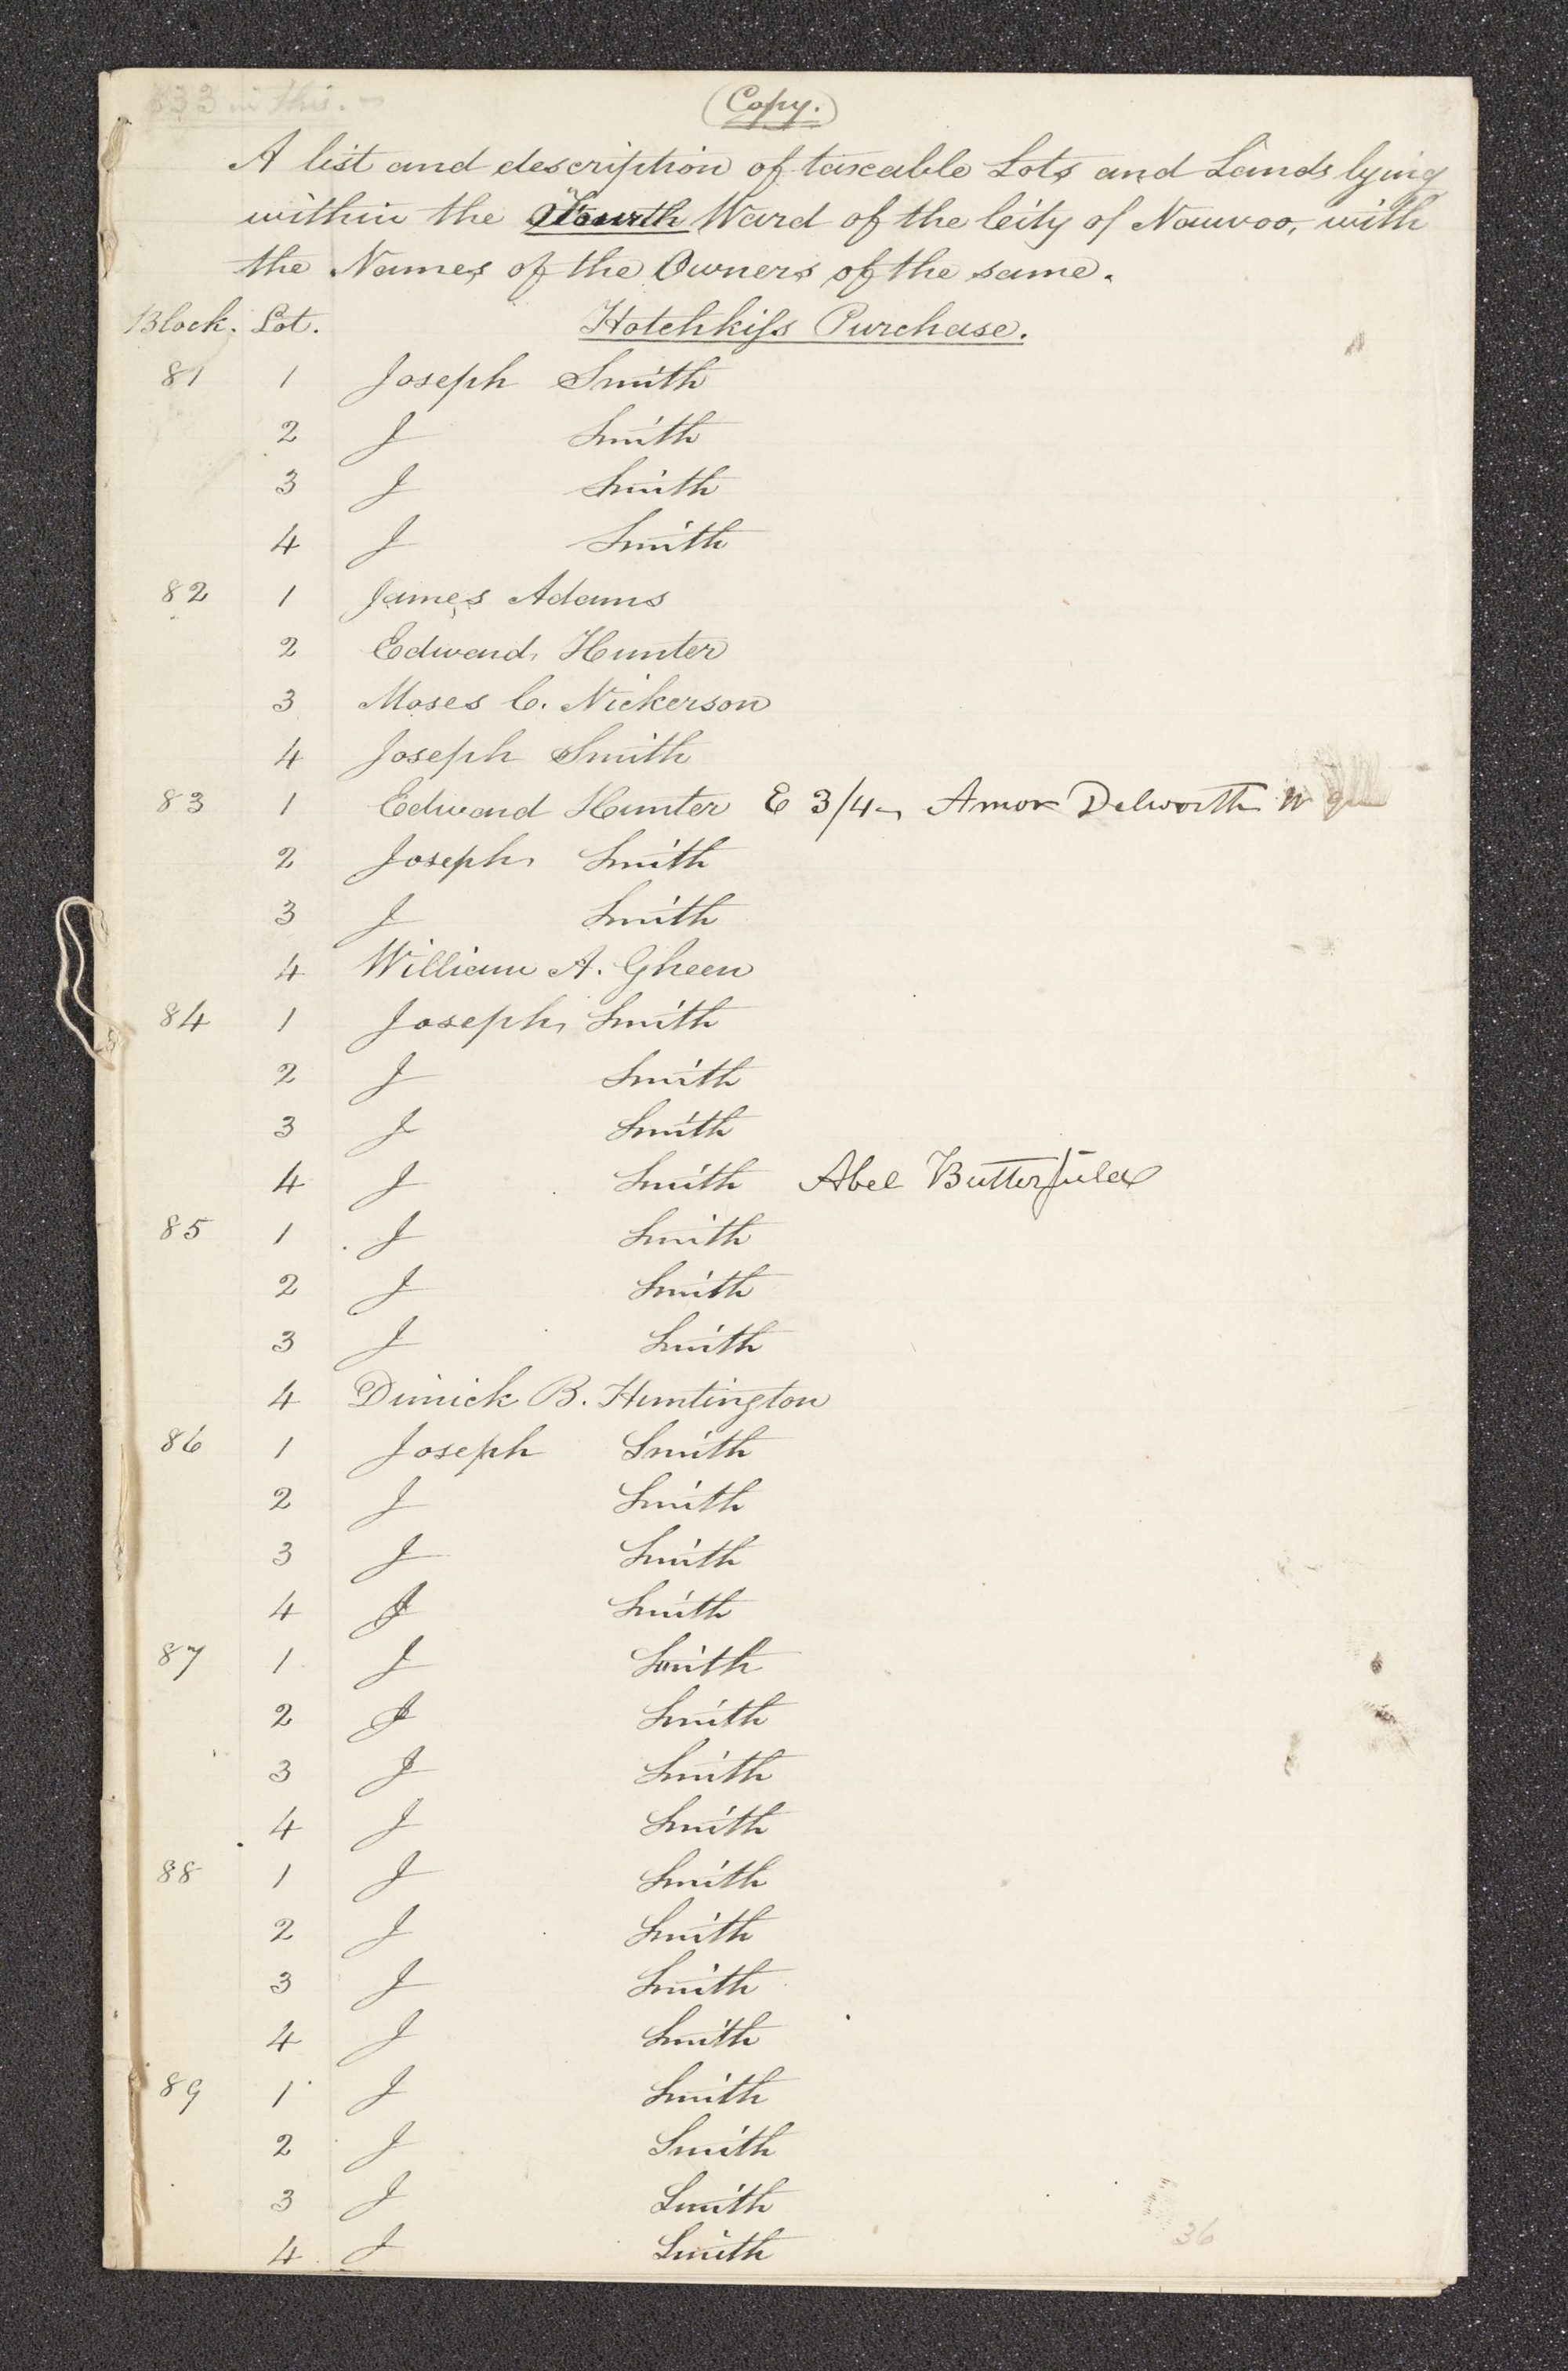 533 in this. –
(Copy.)
A list and description of taxable Lots and Lands lying
within the Fourth Ward of the City of Nauvoo, with
the Names of the Owners of the same.
Block. Lot. Hotchkiſs Purchase.
81 1 Joseph Smith
2 J Smith
3 J Smith
4 J Smith
82 1 James Adams
2 Edward Hunter
3 Moses C. Nickerson
4 Joseph Smith
83 1 Edward Hunter E 3/4 Amor Delworth W
2 Joseph Smith
3 J Smith
4 William A. Gheen
84 1 Joseph Smith
2 J Smith
3 J Smith
4 J Smith Abel Butterfield
85 1 J Smith
2 J Smith
3 J Smith
4 Dimick B. Huntington
86 1 Joseph Smith
2 J Smith
3 J Smith
4 J Smith
87 1 J Smith
2 J Smith
3 J Smith
4 J Smith
88 1 J Smith
2 J Smith
3 J Smith
4 J Smith
89 1 J Smith
2 J Smith
3 J Smith
4 J Smith
36